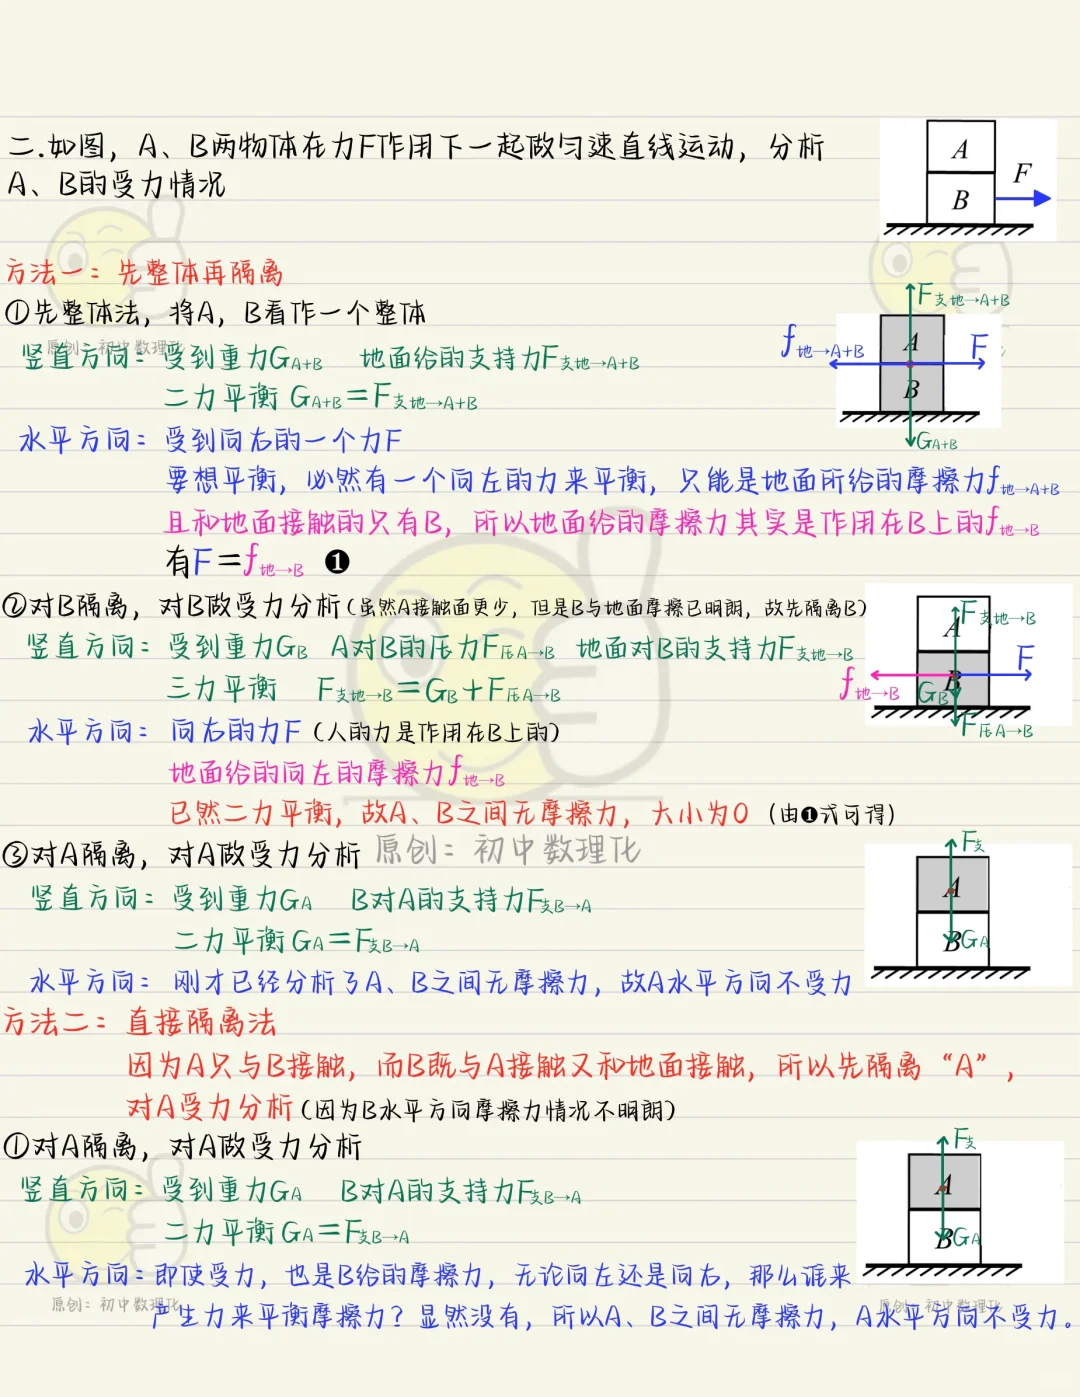 二.如图，A、B两物体在力F作用下一起做匀速直线运动，分析
A、B的受力情况
A
B
F
方法一：先整体再隔离
①先整体法，将A，B看作一个整体
竖直方向：受到重力GA+B 地面给的支持力F支地→A+B
二力平衡 GA+B=F支地→A+B
水平方向：受到向右的一个力F
要想平衡，必然有一个向左的力来平衡，只能是地面所给的摩擦力f地→A+B
且和地面接触的只有B，所以地面给的摩擦力其实是作用在B上的f地→B
有F=f地→B ❶
F支地→A+B
f地→A+B
A
F
B
GA+B
②对B隔离，对B做受力分析（虽然A接触面更少，但是B与地面摩擦已明朗，故先隔离B）
竖直方向：受到重力GB A对B的压力F压A→B 地面对B的支持力F支地→B
三力平衡 F支地→B=GB+F压A→B
水平方向：向右的力F（人的力是作用在B上的）
地面给的向左的摩擦力f地→B
已然二力平衡，故A、B之间无摩擦力，大小为0（由❶式可得）
F支地→B
A
F
f地→B
B
GB
F压A→B
③对A隔离，对A做受力分析
原创：初中数理化
竖直方向：受到重力GA B对A的支持力F支B→A
二力平衡GA=F支B→A
水平方向：刚才已经分析了A、B之间无摩擦力，故A水平方向不受力
F支
A
B
GA
方法二：直接隔离法
因为A只与B接触，而B既与A接触又和地面接触，所以先隔离“A”，
对A受力分析（因为B水平方向摩擦力情况不明朗）
①对A隔离，对A做受力分析
竖直方向：受到重力GA B对A的支持力F支B→A
二力平衡GA=F支B→A
水平方向：即使受力，也是B给的摩擦力，无论向左还是向右，那么谁来
产生力来平衡摩擦力？显然没有，所以A、B之间无摩擦力，A水平方向不受力。
F支
A
B
GA
原创：初中数理化
原创：初中数理化
原创：初中数理化